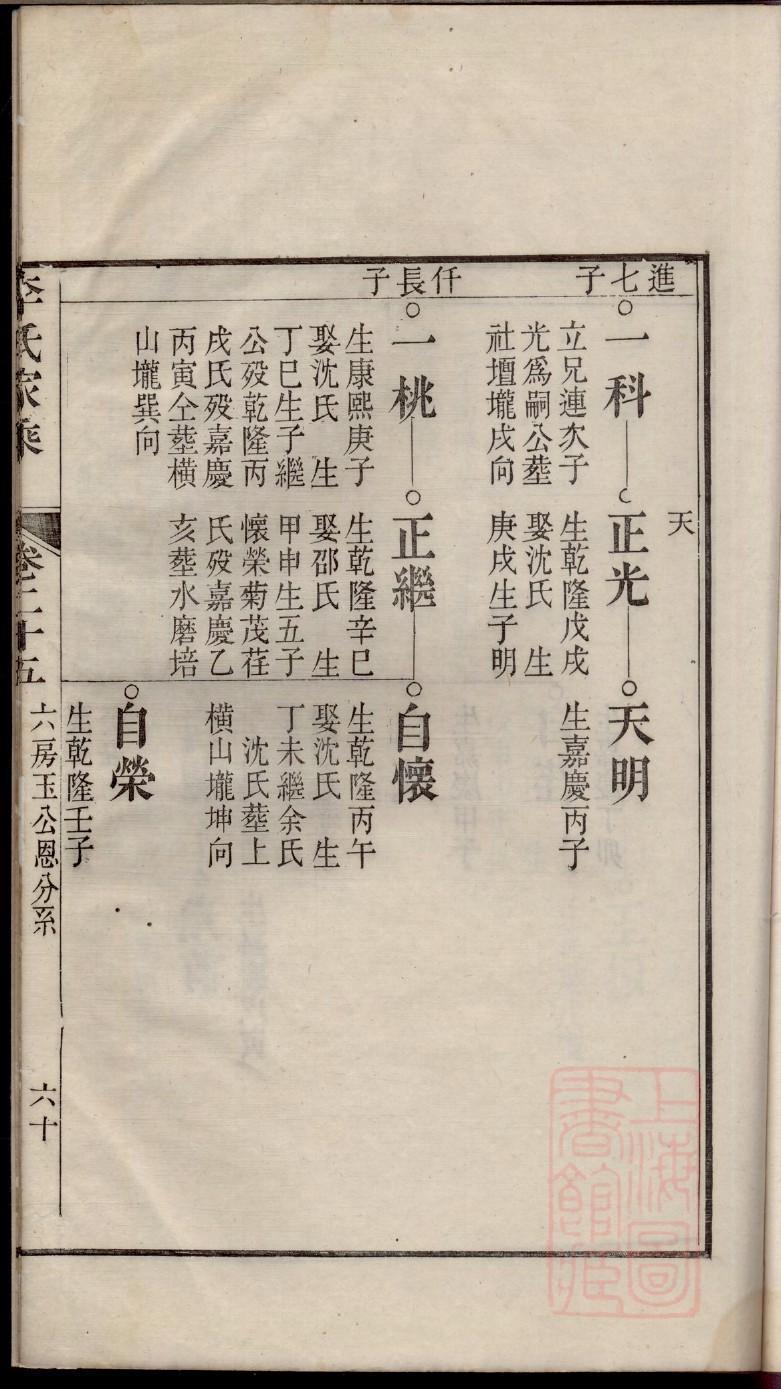 進七子
一科
立兄連次子
光爲嗣公塟
社壇壠戌向
天
正光
生乾隆戊戌
娶沈氏 生
庚戌生子明
天明
生嘉慶丙子
仟長子
一桃
生康熙庚子
娶沈氏 生
丁巳生子繼
公歿乾隆丙
戌氏歿嘉慶
丙寅仝塟橫
山壠巽向
正繼
生乾隆辛巳
娶邵氏 生
甲申生五子
懷榮菊茂荏
氏歿嘉慶乙
亥塟水磨培
自懷
生乾隆丙午
娶沈氏 生
丁未繼余氏
沈氏塟上
橫山壠坤向
自榮
生乾隆壬子
李氏家乘
卷二十五
六房玉公恩分系
六十
上海圖
書館藏